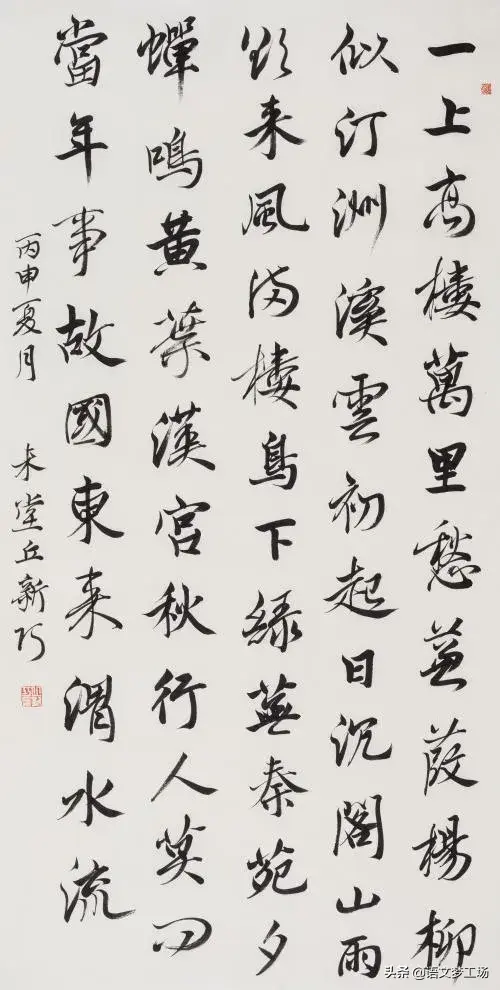 一上高樓萬里愁蒹葭楊柳
似汀洲溪雲初起日沉閣山雨
欲来風滿樓鳥下緑蕪秦苑夕
蟬鳴黃葉漢宮秋行人莫问
當年事故國東来渭水流
丙申夏月 堂丘新巧
头条 @语文梦工场